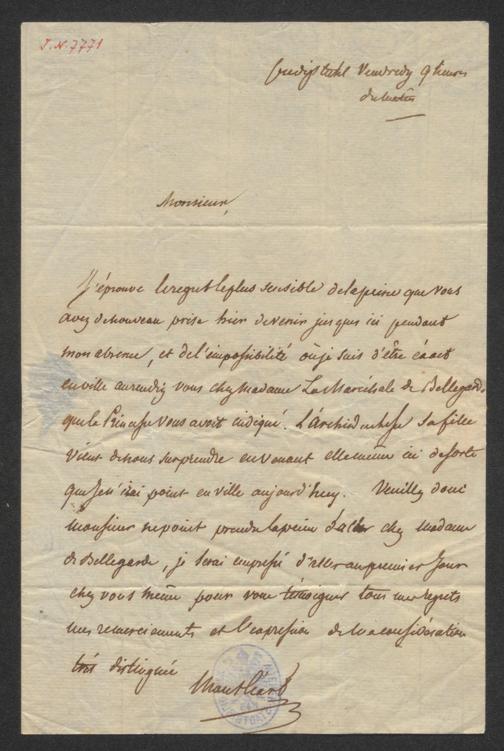 J.N. 7771
Vendredy 9 heures
du matin
Monsieur,
J'éprouve le regret le plus sensible de la peine que vous
avez de nouveau prise hier de venir jusques ici pendant
mon absence, et de l'impossibilité où je suis d'être exact
en ville au rendez vous chez Madame La Maréchale de Bellegarde
que le Prince vous avoit indiqué. L'archiduchesse sa fille
vient de nous surprendre en venant elle même ici de sorte
que je n'irai point en ville aujourd'huy. Veuillez donc
Monsieur ne point prendre la peine d'aller chez Madame
de Bellegarde, je serai empressé d'aller au premier jour
chez vous même pour vous témoigner tous mes regrets
mes remerciements et l'expression de ma considération
très distinguée